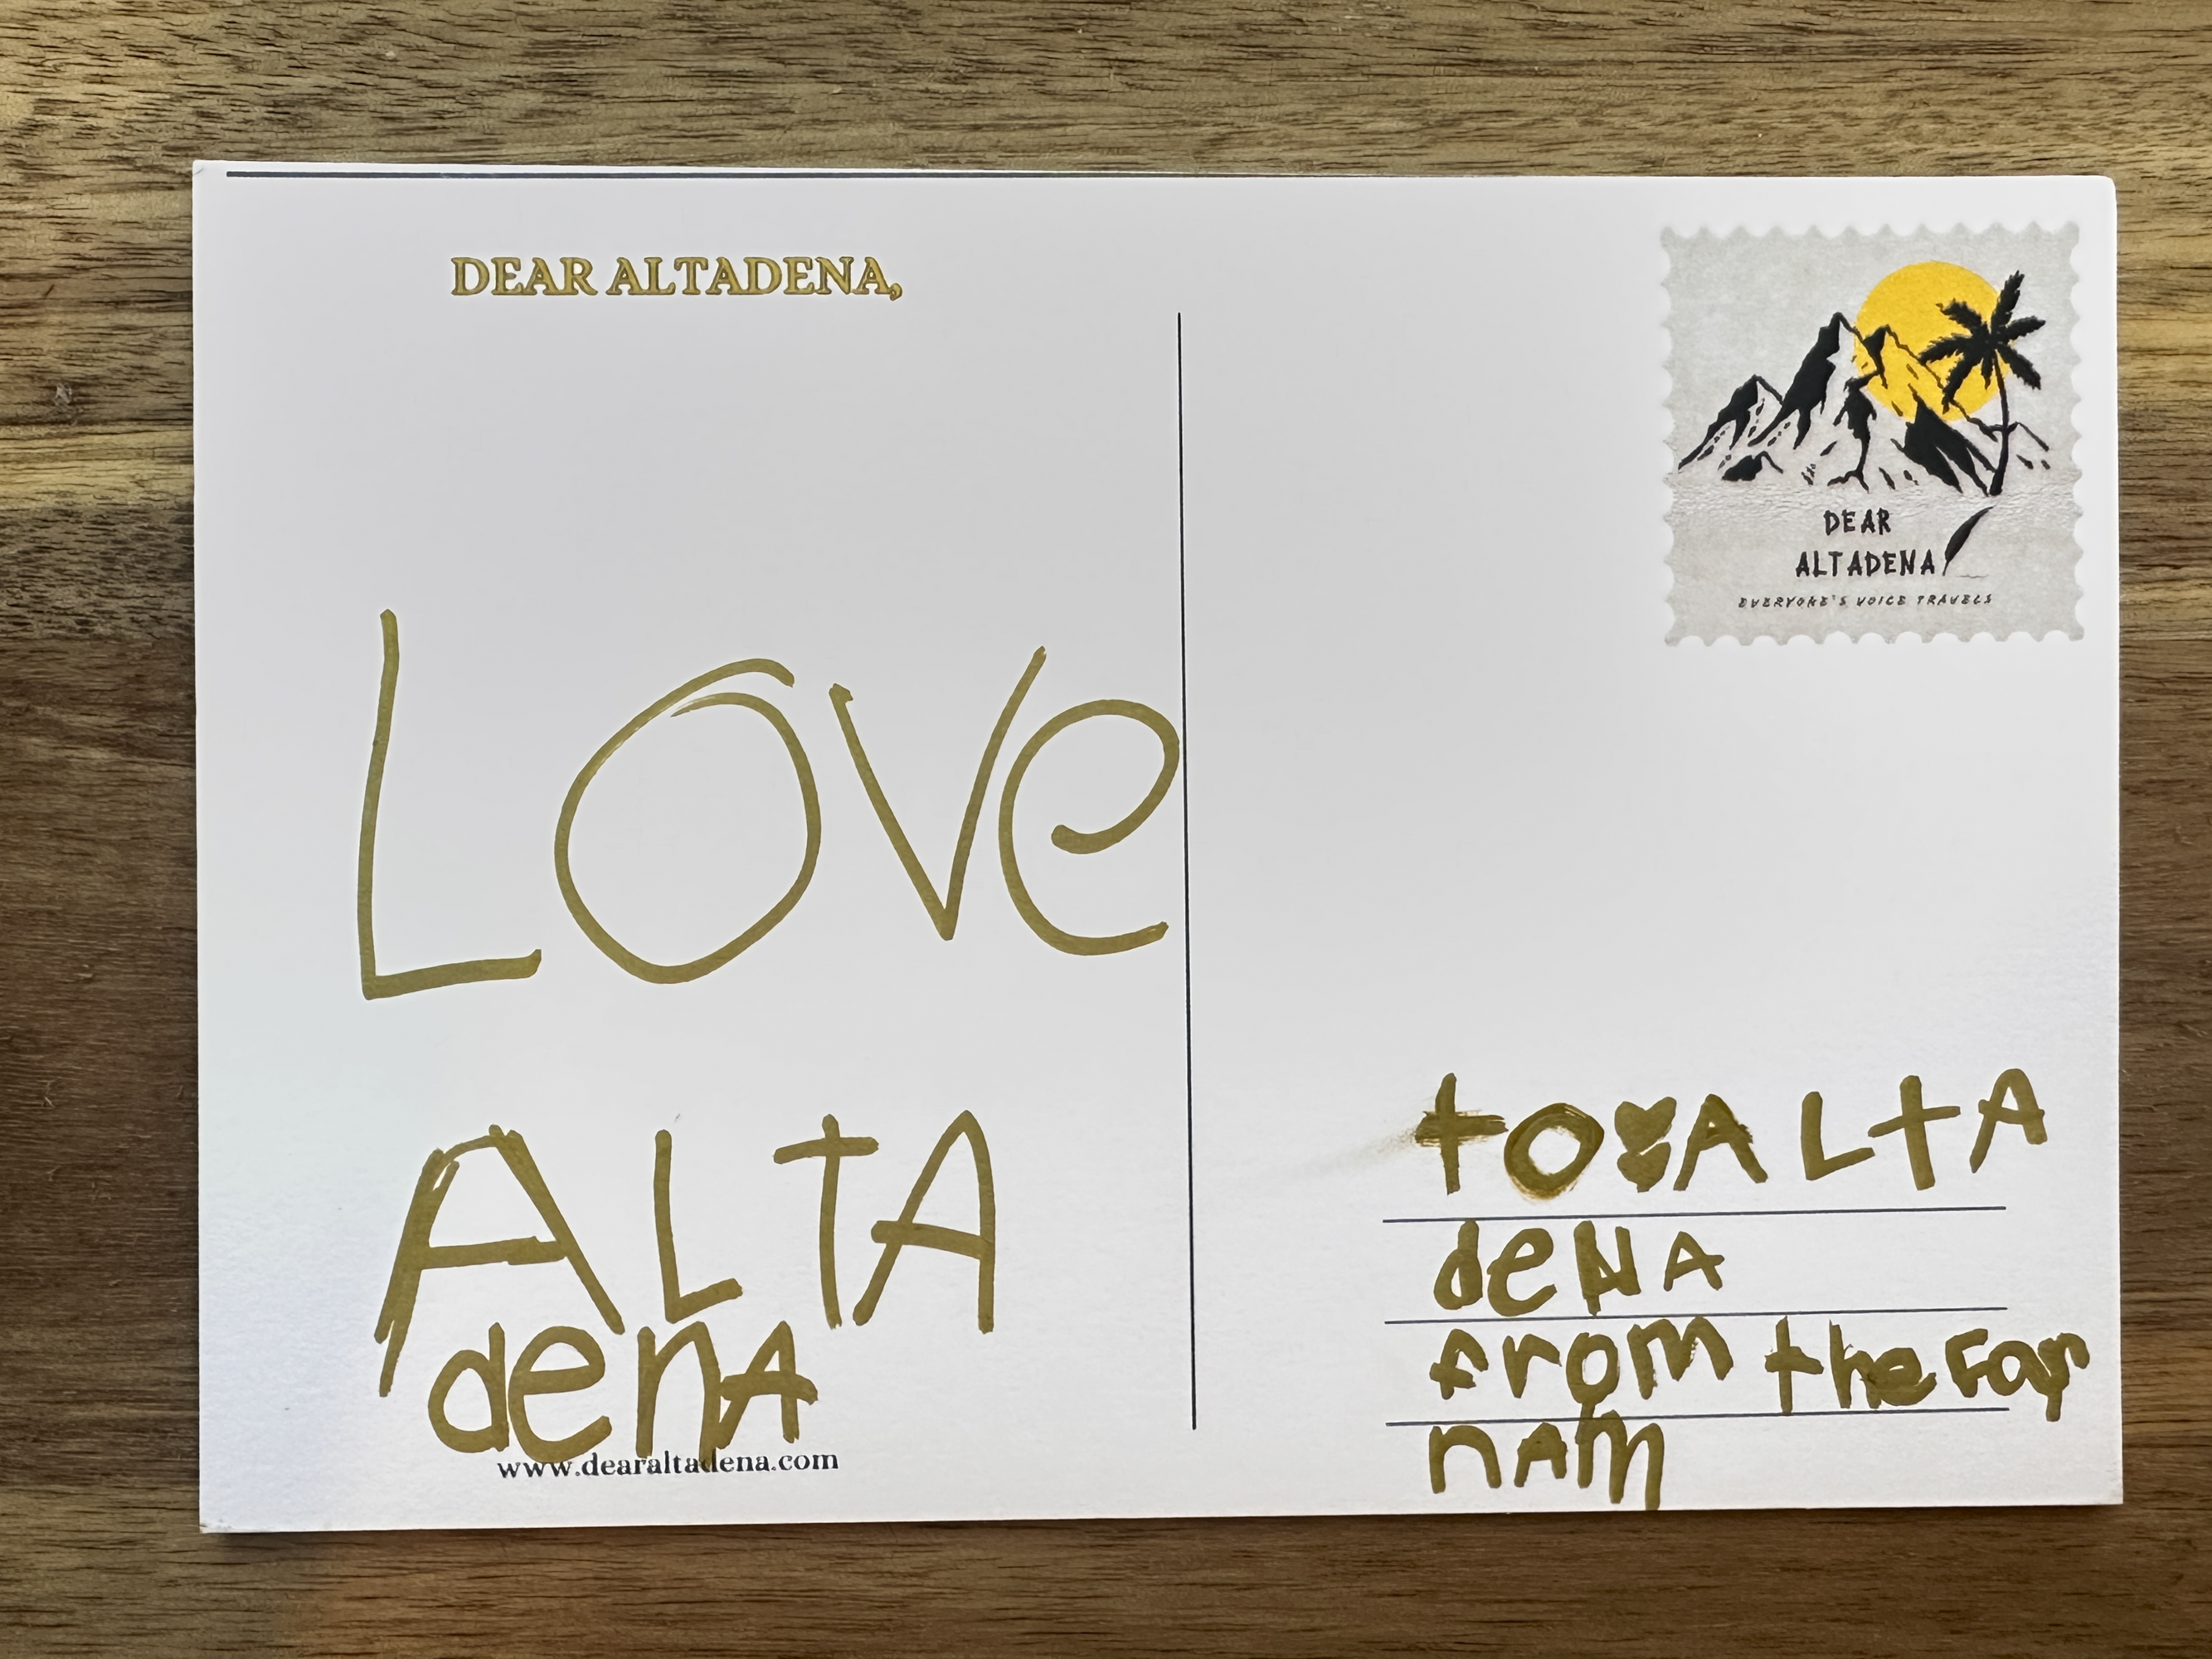 DEAR ALTADENA,
LOVe
ALTA
denA
www.dearaltadena.com
DEAR
ALTADENA
EVERYONE'S VOICE TRAVELS
to ALtA
deNA
from the Far
nAm